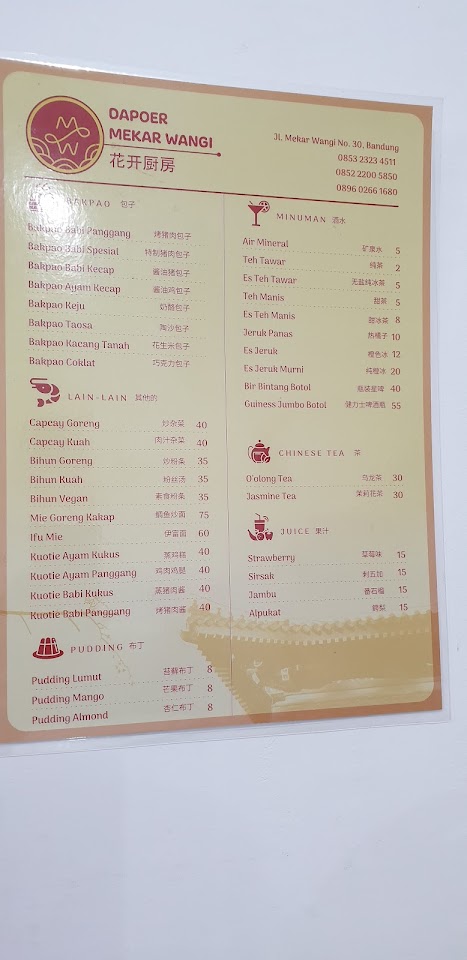 MW
DAPOER
MEKAR WANGI
花开厨房
Jl. Mekar Wangi No. 30, Bandung
0853 2323 4511
0852 2200 5850
0896 0266 1680
BAKPAO 包子
Bakpao Babi Panggang 烤猪肉包子
Bakpao Babi Spesial 特制猪肉包子
Bakpao Babi Kecap 酱油猪包子
Bakpao Ayam Kecap 酱油鸡包子
Bakpao Keju 奶酪包子
Bakpao Taosa 陶沙包子
Bakpao Kacang Tanah 花生米包子
Bakpao Coklat 巧克力包子
LAIN-LAIN 其他的
Capcay Goreng 炒杂菜 40
Capcay Kuah 肉汁杂菜 40
Bihun Goreng 炒粉条 35
Bihun Kuah 粉丝汤 35
Bihun Vegan 素食粉条 35
Mie Goreng Kakap 鲷鱼炒面 75
Ifu Mie 伊富面 60
Kuotie Ayam Kukus 蒸鸡糕 40
Kuotie Ayam Panggang 鸡肉鸡腿 40
Kuotie Babi Kukus 蒸猪肉酱 40
Kuotie Babi Panggang 烤猪肉酱 40
PUDDING 布丁
Pudding Lumut 苔藓布丁 8
Pudding Mango 芒果布丁 8
Pudding Almond 杏仁布丁 8
MINUMAN 酒水
Air Mineral 矿泉水 5
Teh Tawar 纯茶 2
Es Teh Tawar 无盐纯冰茶 5
Teh Manis 甜茶 5
Es Teh Manis 甜冰茶 8
Jeruk Panas 热橘子 10
Es Jeruk 橙色冰 12
Es Jeruk Murni 纯橙冰 20
Bir Bintang Botol 瓶装星啤 40
Guiness Jumbo Botol 健力士啤酒瓶 55
CHINESE TEA 茶
O'olong Tea 乌龙茶 30
Jasmine Tea 茉莉花茶 30
JUICE 果汁
Strawberry 草莓味 15
Sirsak 刺五加 15
Jambu 番石榴 15
Alpukat 鳄梨 15